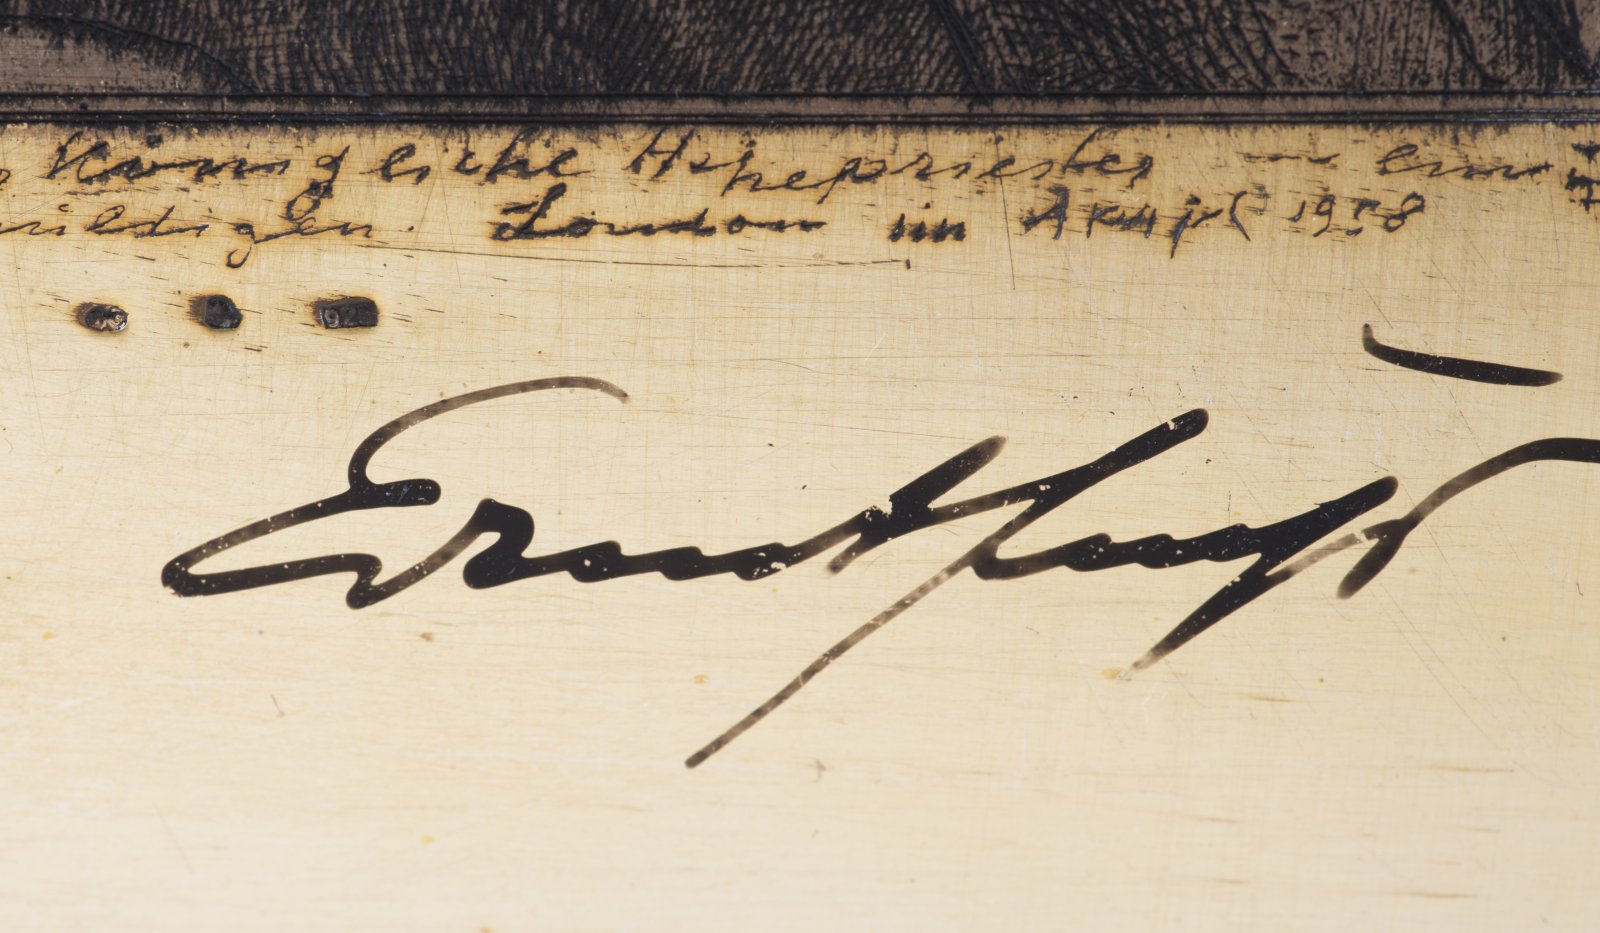 Königliche Hohepriester – ein
huldigen. London im April 1958
192
Ernst Fuchs